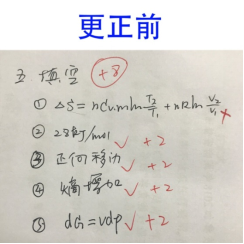 更正前
五 填空 +8
① ΔS = nCv.m ln T₂/T₁ + nR ln V₂/V₁ ×
② 28 kJ/mol ✓ +2
③ 正向移动 ✓ +2
④ 熵增加 ✓ +2
⑤ dG = vdp ✓ +2